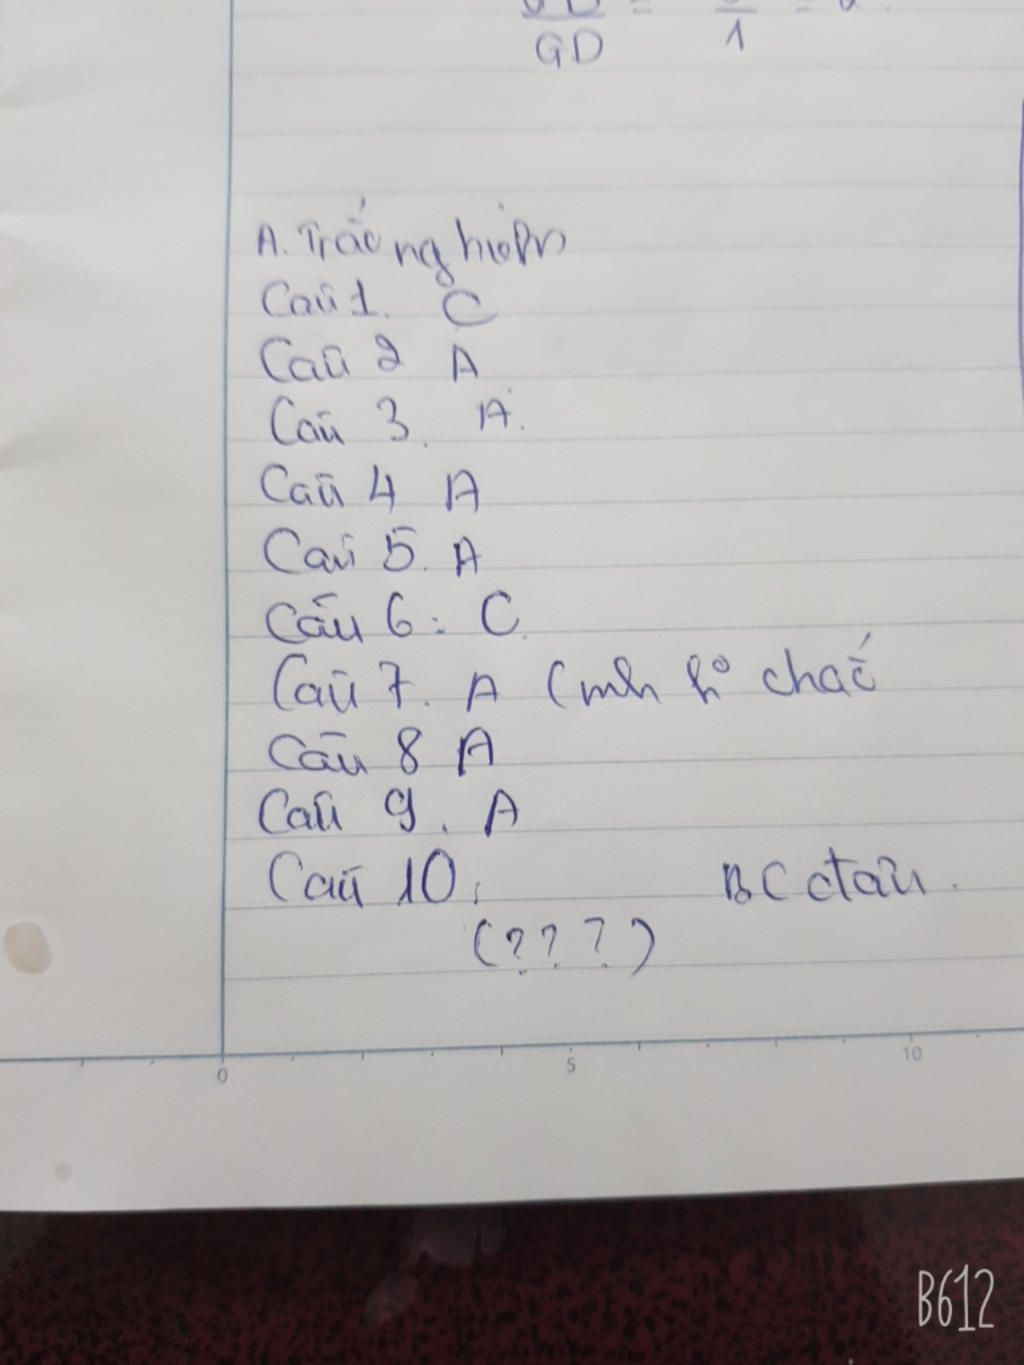 GD 1
A. Trắc nghiệm
Câu 1. C
Câu 2 A
Câu 3. A.
Câu 4 A
Câu 5. A
Câu 6: C.
Câu 7. A (mh k° chắc
Câu 8 A
Câu 9. A
Câu 10: BC đâu.
(????)
0 5 10
B612